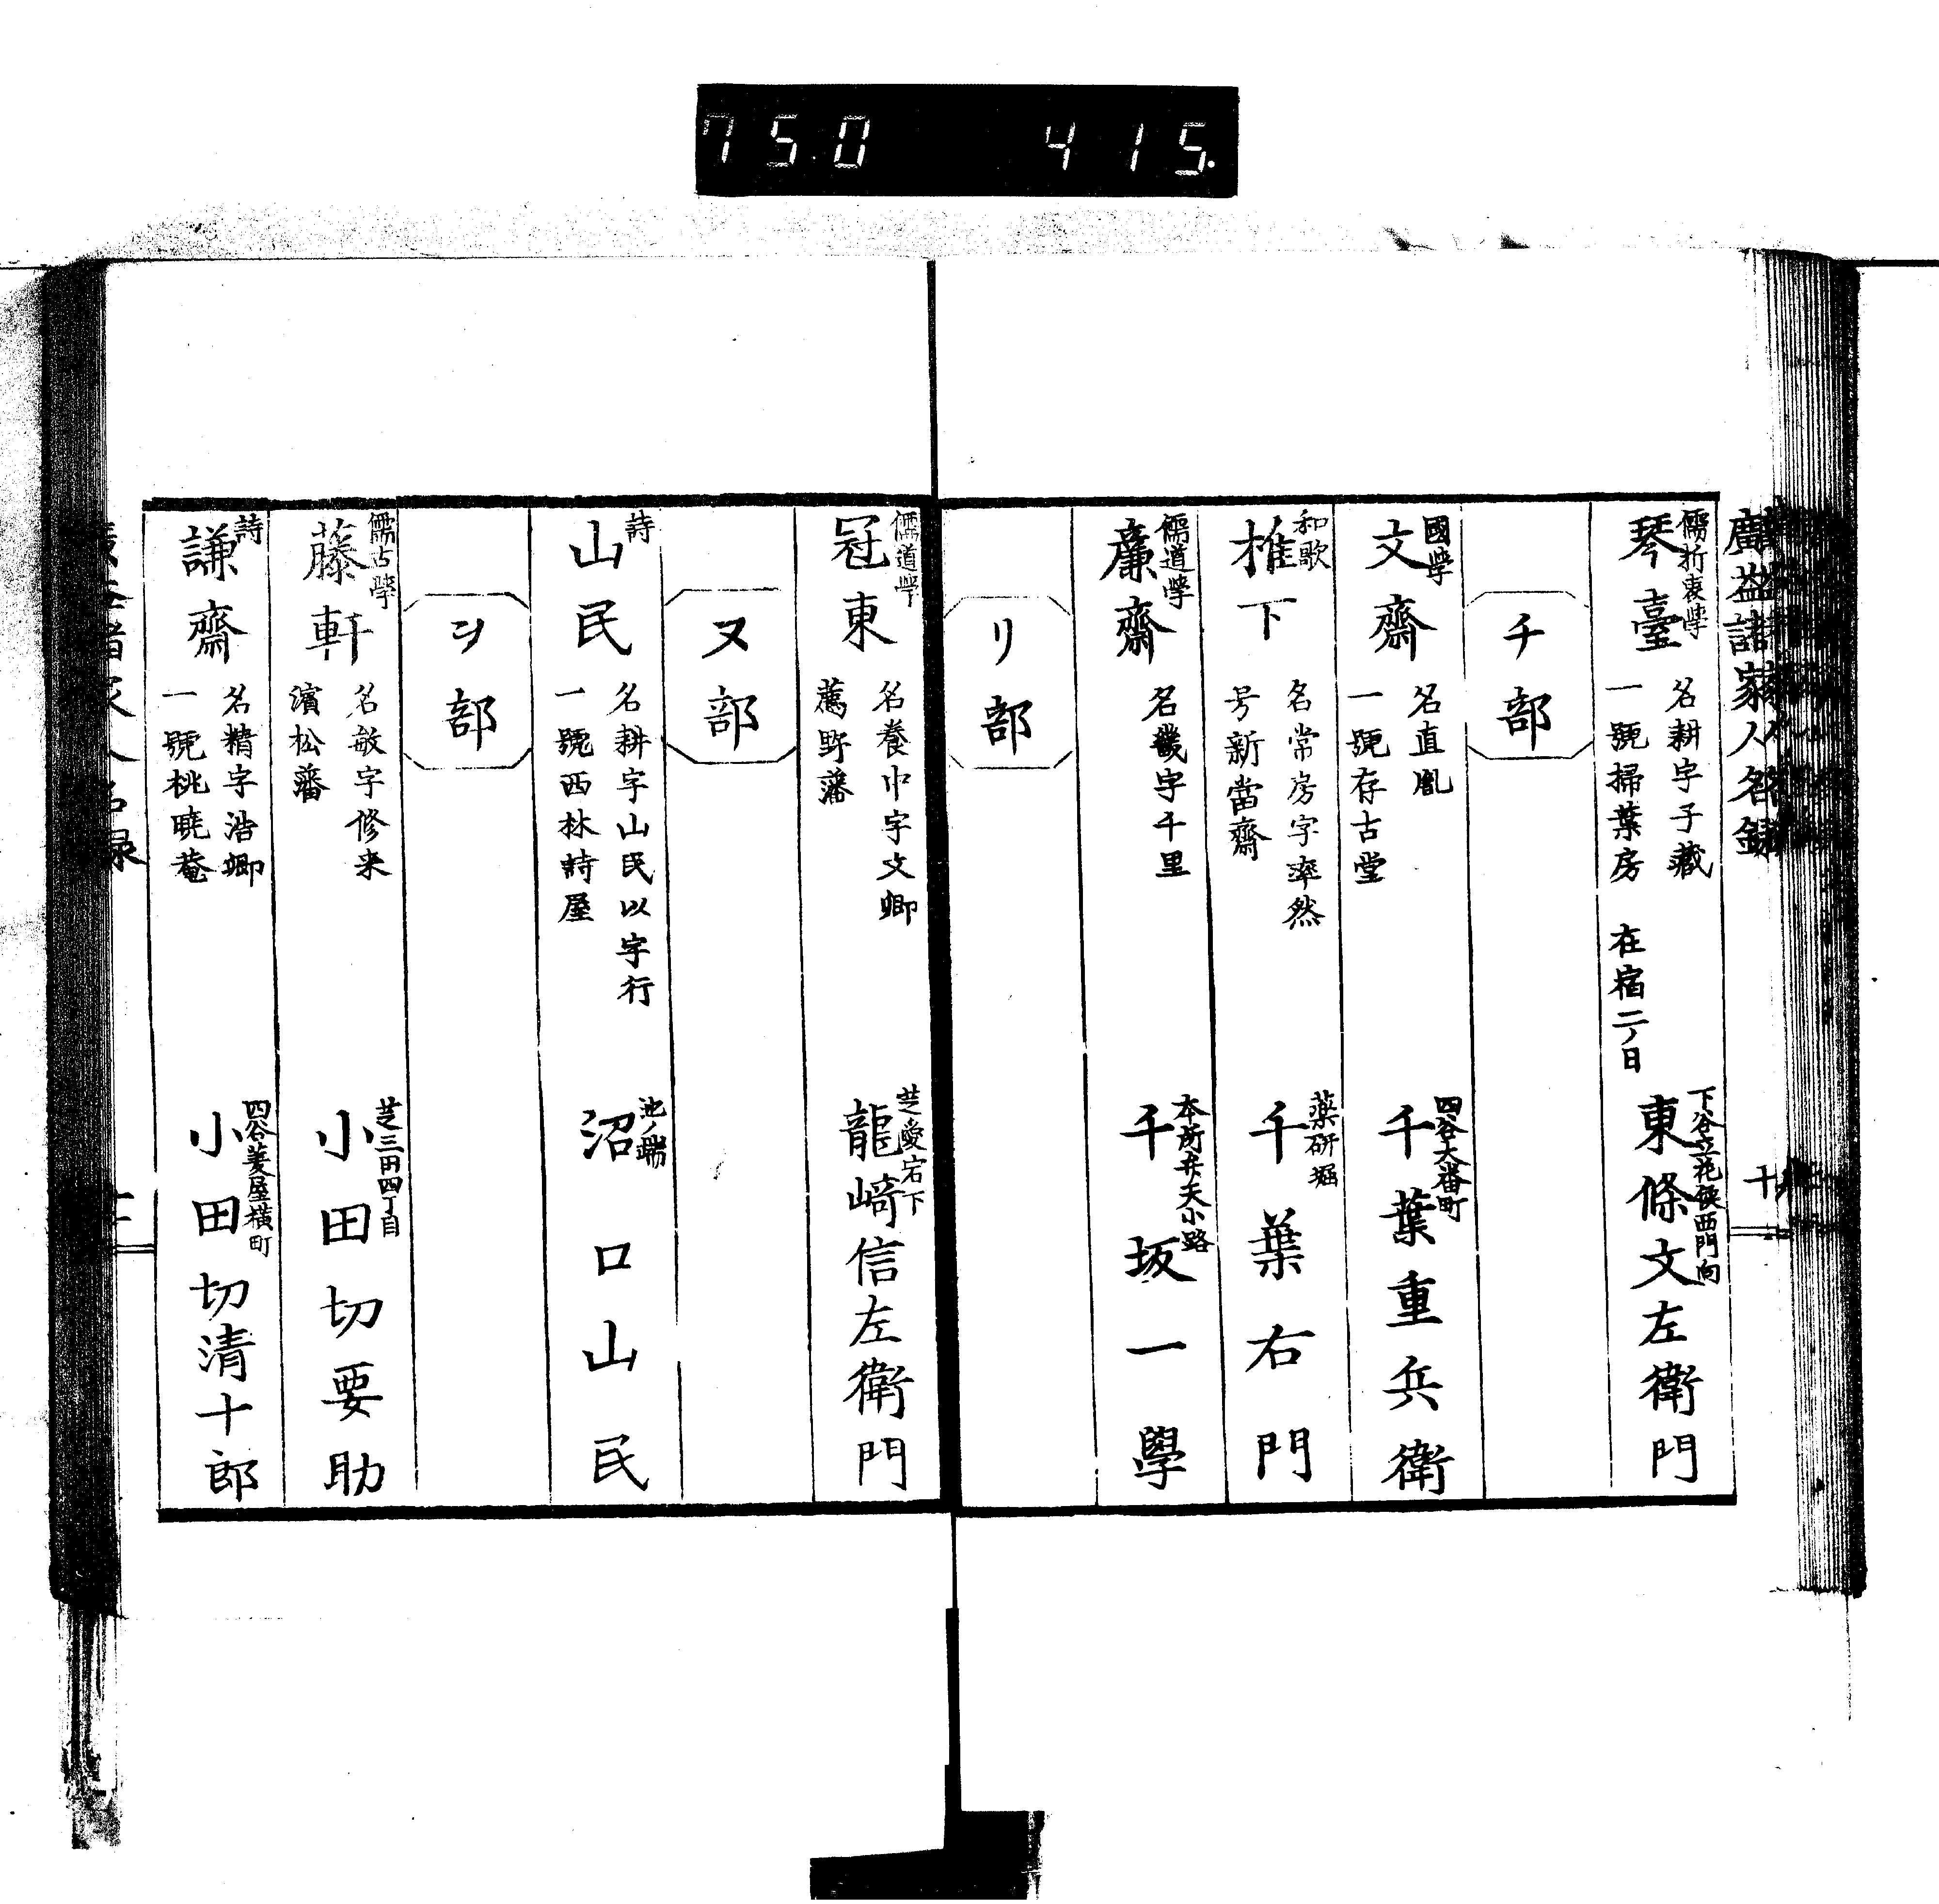 750 415.
廣益諸家人名録
儒折衷学
琴臺
名耕字子藏
一號掃葉房
在宿二ノ日
下谷立花侯西門向
東條文左衛門
チ部
國学
文齋
名直胤
一號存古堂
四谷大番町
千葉重兵衛
和歌
椎下
名常房字率然
号新當齋
薬研堀
千葉右門
儒道学
廉齋
名畿字千里
本所弁天小路
千坂一學
リ部
儒道学
冠東
名養中字文卿
薦野藩
芝愛宕下
龍﨑信左衛門
ヌ部
詩
山民
名耕字山民以字行
一號西林詩屋
池ノ端
沼口山民
ヲ部
儒古学
藤軒
名敏字修来
濱松藩
芝三田四丁目
小田切要助
詩
謙齋
名精字浩卿
一號桃暁菴
四谷菱屋横町
小田切清十郎